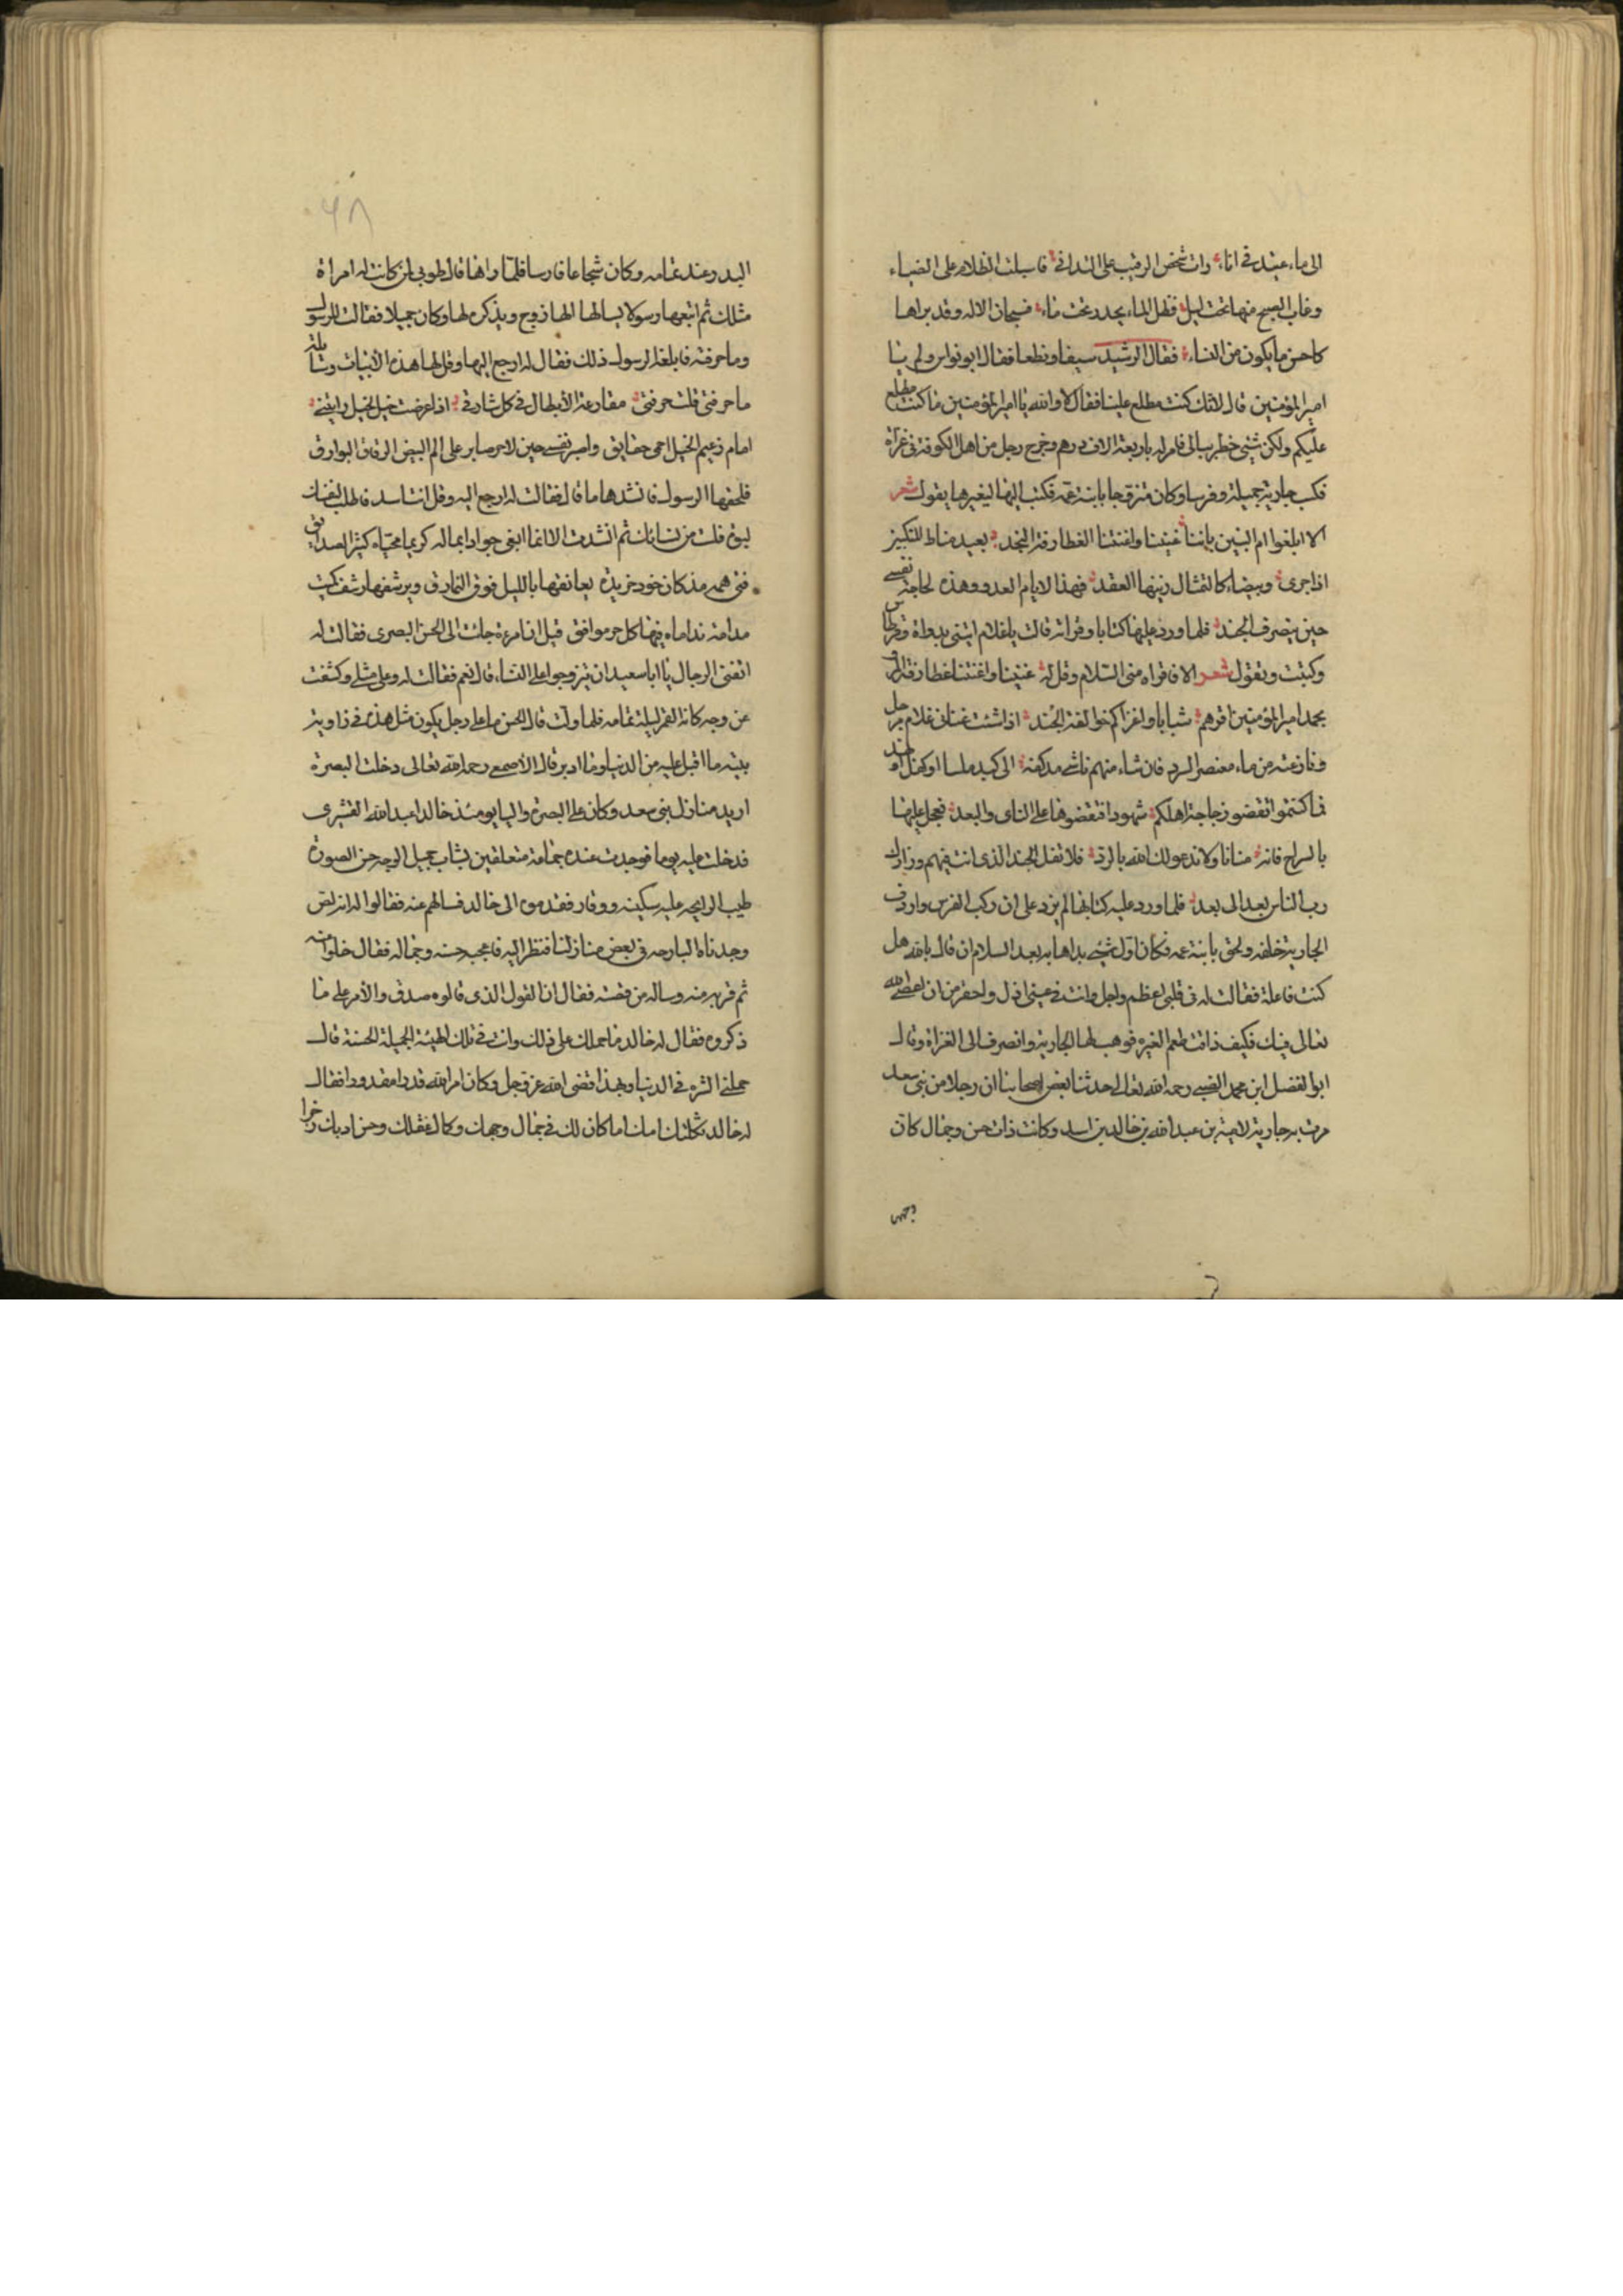 الى ماء عتيد في اناء رات شخص الرقيب على التداني فاسبلت الظلام على الضياء
وغاب الصبح منها تحت ليل فظل الماء يجدر تحت ماء فسبحان الاله وقد براها
كاحسن ما يكون من النساء فقال الرشيد سيفا ونطعا فقال ابو نواس ولم يا
امير المؤمنين قال لانك كنت مطلع علينا فقال لا والله يا امير المؤمنين ما كنت مطلع
عليكم ولكن شيئ خطر ببالي فامر له باربعة الاف درهم وخرج رجل من اهل الكوفة في غزاة
فكسب جارية جميلة وفرسا وكان متزوجا بابنة عمه فكتب اليها ليغيرها يقول شعر
الا ابلغوا ام البنين باننا غنينا واغنتنا الغطارفة النجد بعيد مناط المنكبين
اذا جرى وبيضاء كالتمثال زينها العقد فهذا لايام العدو وهذه لحاجة نفسي
حين ينصرف الجند فلما ورد عليها كتابا وقراته قالت يا غلام ايتني بدواة وقرطاس
وكتبت وتقول شعر الا فاقراه مني السلام وقل له غنينا واغنتنا غطارفة المرد
بحمد امير المؤمنين اقرهم شبابا واغزاكم خوالف الجند اذا شئت غناني غلام مرجل
ونازعته من ماء معتصر الورد فان شاء منهم ناشي مد كفه الى كبد ملسا او كفل نهد
فما كنتموا تقضون حاجة اهلكم شهودا فتقضوها على الناي والبعد فعجل علينا
بالسراح فانه منانا ولا ندعو لك الله بالرد فلا تقفل الجند الذي انت فيهم وزادك
رب الناس بعدا الى بعد فلما ورد عليه كتابها لم يزد على ان ركب الفرس واردف
الجارية خلفه ولحق بابنة عمه فكان اول شيئ بداها به بعد السلام ان قال بالله هل
كنت فاعلة فقالت له في قلبي اعظم واجل وانت في عيني اذل واحقر من ان اعصي الله
تعالى فيك فكيف ذاقت طعم الغيره فوهب لها الجارية وانصرف الى الغزاة وقال
ابو الفضل ابن محمد الضبي رحمه الله تعالى حدثنا بعض اصحابنا ان رجلا من بني سعد
مرت به جارية لامية بن عبد الله بن خالد بن اسد وكانت ذات حسن وجمال كان
وجهها
٦٨
البدر عند تمامه وكان شجاعا فارسا فلما راها قال طوبى لمن كانت له امراة
مثلك ثم اتبعها رسولا يسالها الها زوج ويذكره لها وكان جميلا فقالت للرسول
وما حرفته فابلغه الرسول ذلك فقال له ارجع اليها وقل لها هذه الابيات
ما حرفتي قلت حرفتي مقارعة الابطال في كل شارق اذا عرضت خيل لخيل رايتني
امام رعيم الخيل احمي حقايق واصبر نفسي حين لا حر صابر على الم البيض الرقاق البوارق
فلحقها الرسول فانشدها ما قال فقالت له ارجع اليه وقل انت اسد فاطلب لنفسك
لبوة فلست من نسائك ثم انشدت الا انما ابغي جوادا بماله كريما محياه كثير الصدايق
فتى همه مذ كان خود خريده يعانقها بالليل فوق النمارق ويرشفها رشف كميت
مدامة نداماه فيها كل حر موافق قيل ان امرءة جات الى الحسن البصري فقالت له
اتفتي الرجال يا ابا سعيد ان يتزوجوا على النساء قال نعم فقالت له وعلى مثلي وكشفت
عن وجه كانه القمر ليلة تمامه فلما ولت قال الحسن ما على رجل يكون مثل هذه في زاوية
بيته ما اقبل عليه من الدنيا وما ادبر قال الاصمعي رحمه الله تعالى دخلت البصرة
اريد منازل بني سعد وكان على البصرة واليا يومئذ خالد عبد الله القشيري
فدخلت عليه يوما فوجدت عنده جماعة متعلقين بشاب جميل الوجه حسن الصورة
طيب الرايحه عليه سكينه ووقار فقدموه الى خالد فسالهم عنه فقالوا له انه لص
وجدناه البارحه في بعض منازلنا فنظر اليه فاعجبه حسنه وجماله فقال خلوا عنه
ثم قربه منه وساله من قصته فقال ان القول الذي قالوه صدق والامر على ما
ذكروه فقال له خالد ما حملك على ذلك وانت في تلك الهيئة الجميلة الحسنة قال
حملني الشره في الدنيا وبهذا قضى الله عز وجل وكان امر الله قدرا مقدورا فقال
له خالد ثكلتك امك اما كان لك في جمال وجهك وكمال عقلك وحسن ادبك زاجرا